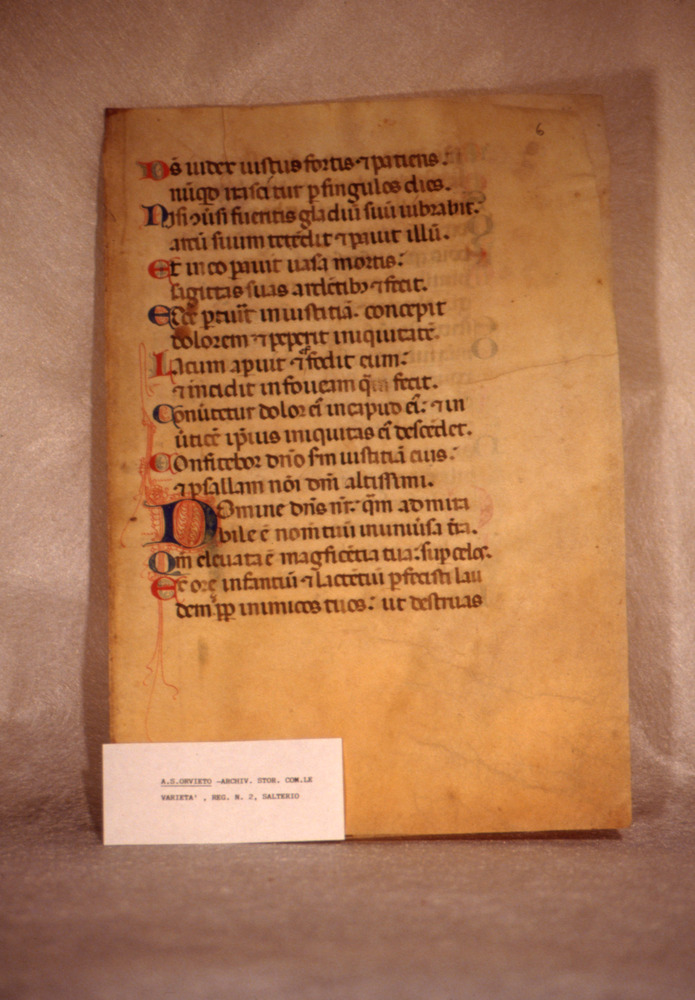 6
Ds̄ iudex iustus fortis ⁊ patiens:
nūq̄d irascitur ꝑ singulos dies.
Nisi ↄūsi fueritis gladiū suū uibrabit:
arcū suum tetēdit ⁊ pauit illū.
Et in eo pauit uasa mortis:
sagittas suas ardētibꝫ effecit.
Ecce ꝑturiit iniustitiā. concepit
dolorem ⁊ peperit iniquitatē.
Lacum apuit ⁊ effodit eum:
⁊ incidit in foueam q̄m fecit.
Conūtetur dolor eī in caput eī: ⁊ in
ūticē ip̄ius iniquitas eī descēdet.
Confitebor dn̄o sm̄ iustitiā eius:
⁊ psallam nōi dn̄i altissimi.
Domine dn̄s nr̄: q̄m admira
bile ē nom̄ tuū in uniūsa t̄ra.
Qm̄ eleuata ē magficētia tua: sup celos.
Ex ore infantiū ⁊ lactētiū ꝑfecisti lau
dem ꝓp̄ inimicos tuos: ut destruas
A.S.ORVIETO -ARCHIV. STOR. COM.LE
VARIETA' , REG. N. 2, SALTERIO